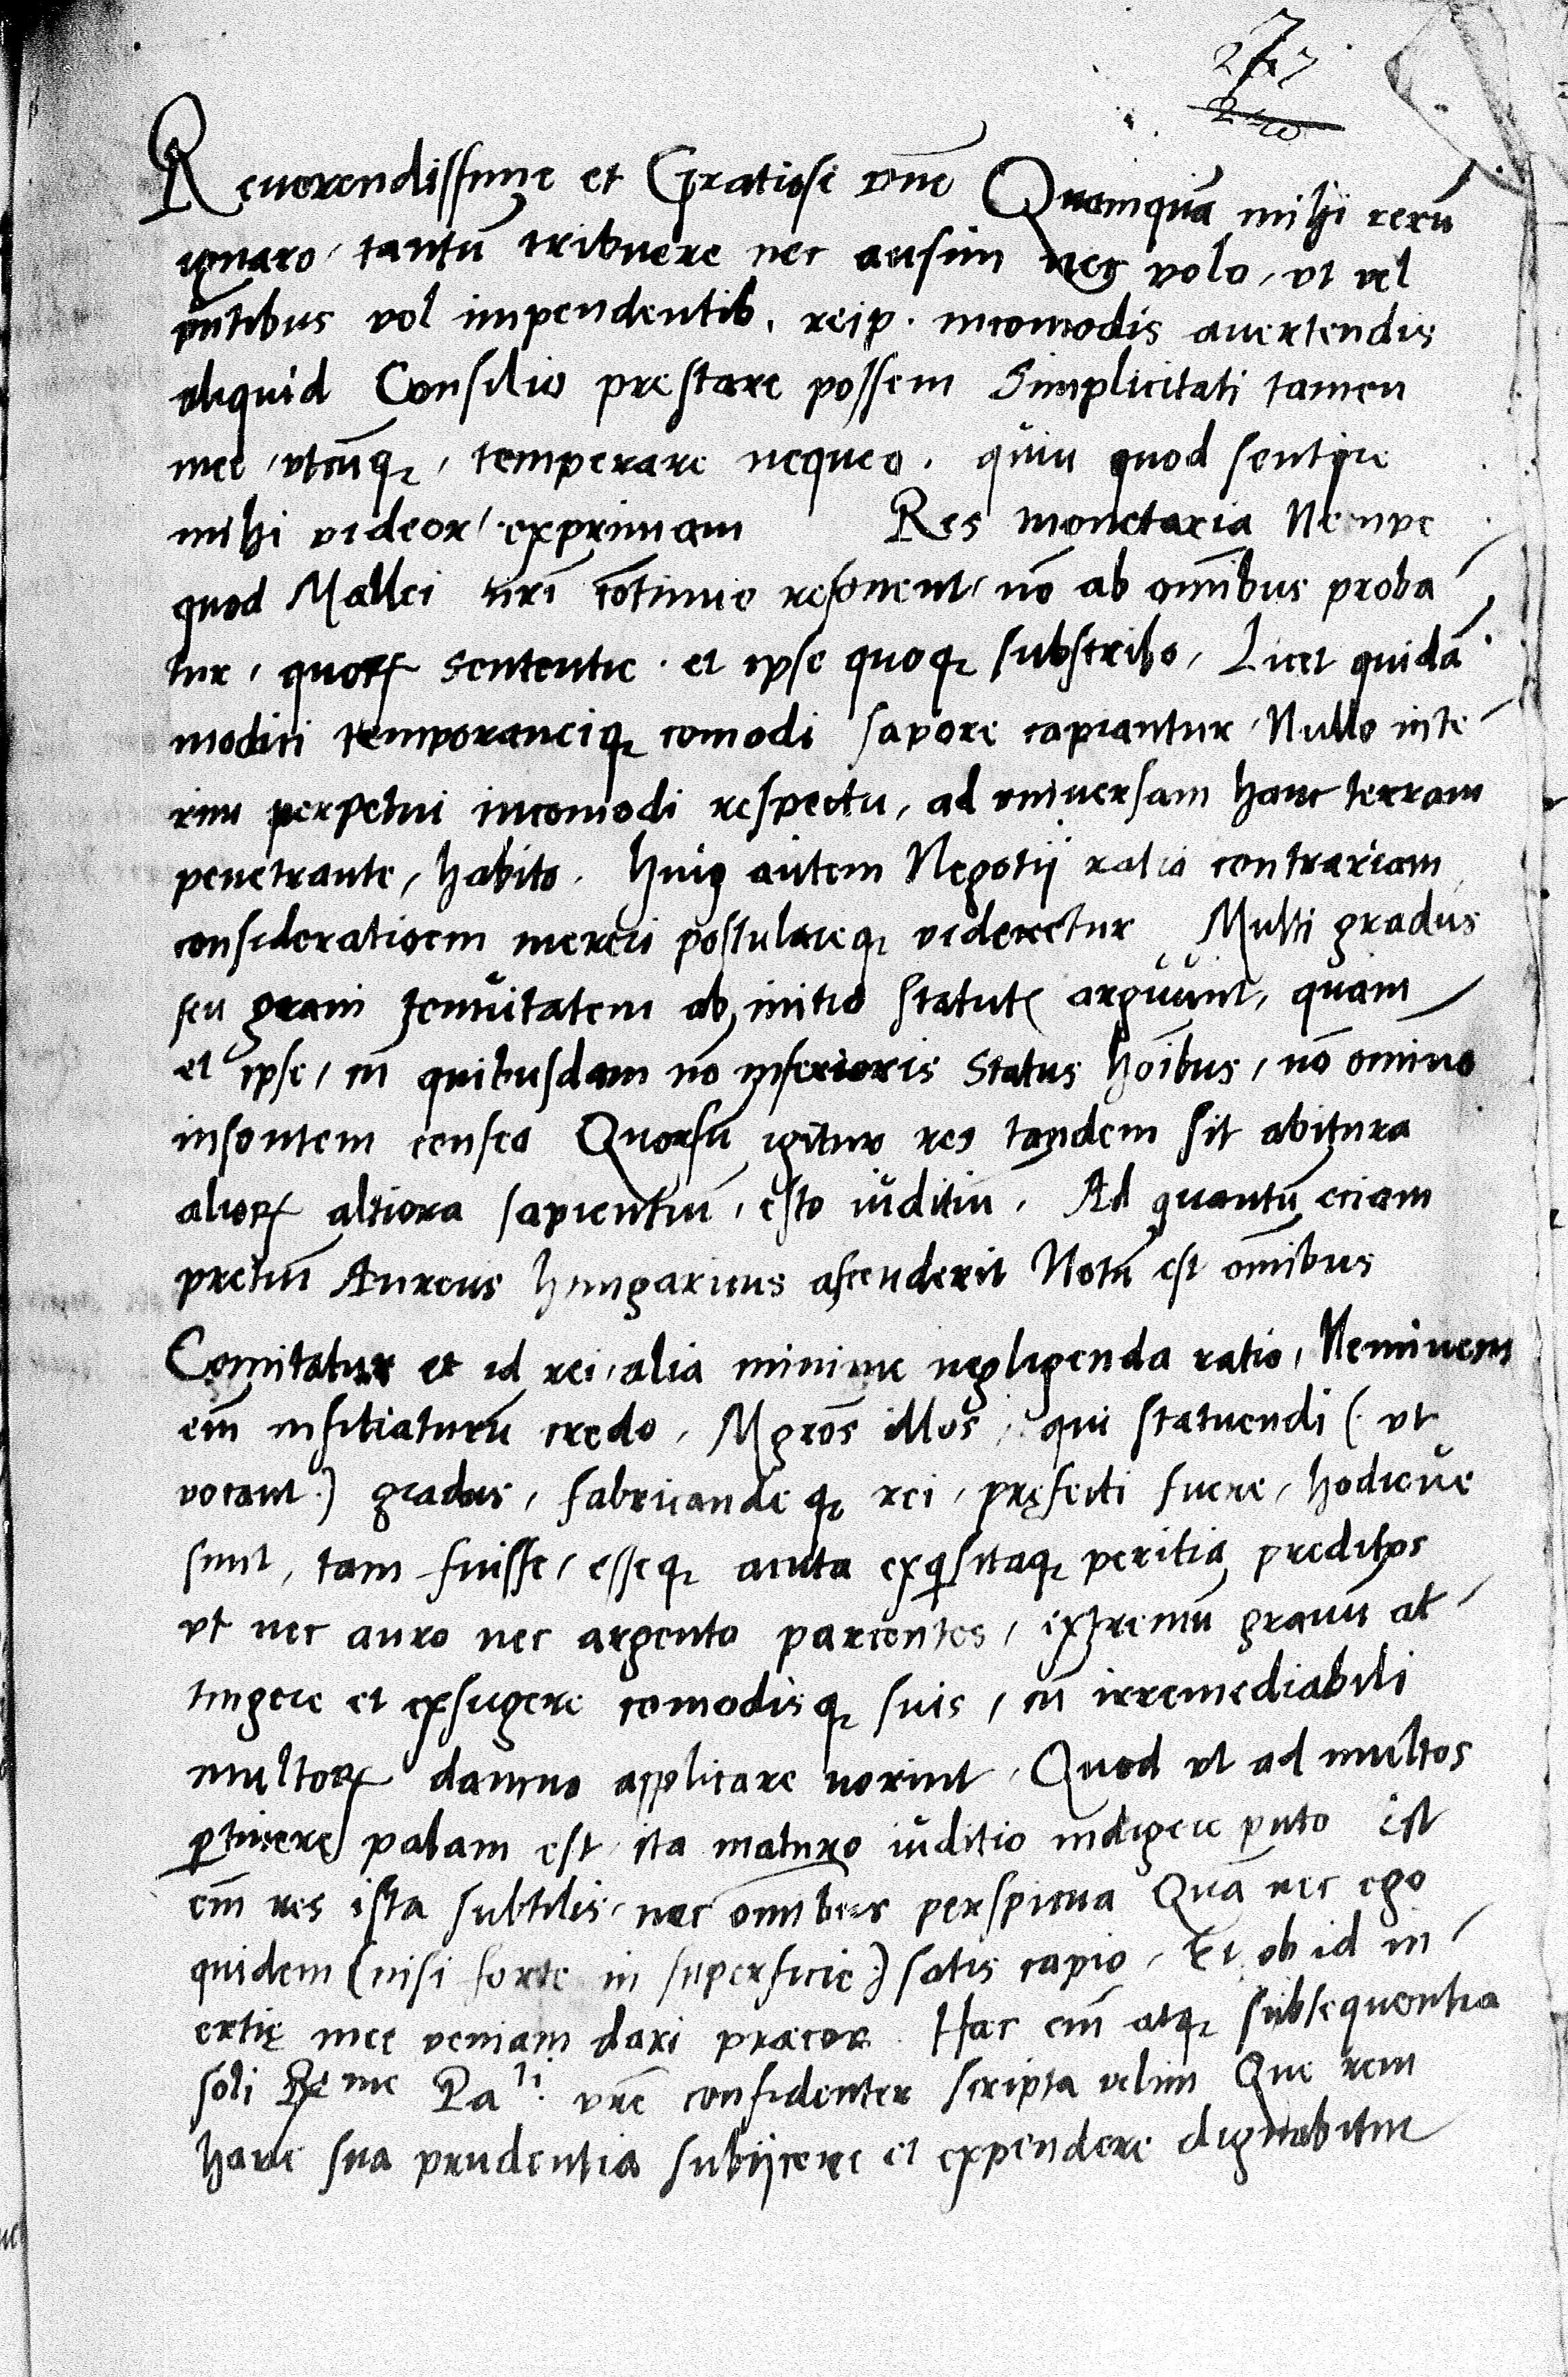 267
240
Reuerendissime et Gratiose dne Quamquā mihi rerū
ignaro, tantū tribuere nec ausim nec volo, vt vel
pñtibus vel impendentib. reip. incomodis auertendis
aliquid Consilio prestare possem Simplicitati tamen
mee, vtcūq, temperare nequeo. quin quod sentire
mihi videor, exprimam Res monetaria Nempe
quod Mallei nri cōtinuo resonent, nō ab omībus proba
tur, quorꝝ sententie. et ipse quoqꝫ subscribo, Licet quidā
modici temporaneiqꝫ comodi sapore capiantur, Nullo inte
rim perpetui incomodi respectu, ad vniuersam hanc terram
penetrante, habito. Huiꝰ autem Negotij ratio contrariam
consideratioem mereri postulareqꝫ videretur Multi gradus
seu grani tenuitatem ab initio statutā arguunt, quam
et ipse, cū quibusdam nō inferioris Status hoībus, nō omīno
insontem censeo Quorsū igitur res tandem sit abitura
aliorꝝ altiora sapientiū, esto iuditiū. Ad quantū eciam
pretiū Aureus hungaricus ascenderit Notū est omībus
Comitatur et id rei, alia minime negligenda ratio, Neminem
eīm infitiaturū credo, Mgros illos, qui statuendi (vt
vocant.) gradus, fabricandeqꝫ rei, pręfecti fuere, hodieve
sunt, tam fuisse, esseqꝫ acuta exqisitaqꝫ peritia preditos
vt nec auro nec argento parcentes, extremū granū at
tingere et exsugere comodisqꝫ suis, cū irremediabili
multorꝝ damno applicare norint. Quod vt ad multos
ꝑtinere palam est, ita maturo iuditio indigere puto Est
eīm res ista subtilis, nec omībus perspicua Quā nec ego
quidem (nisi forte in superficie.) satis capio, Et ob id in
ertię mee veniam dari precor. Hac eīm atqꝫ subsequentia
soli Rme Pa ti. vre confidenter scripta velim Que rem
hanc sua prudentia subijcere et expendere dignabitur